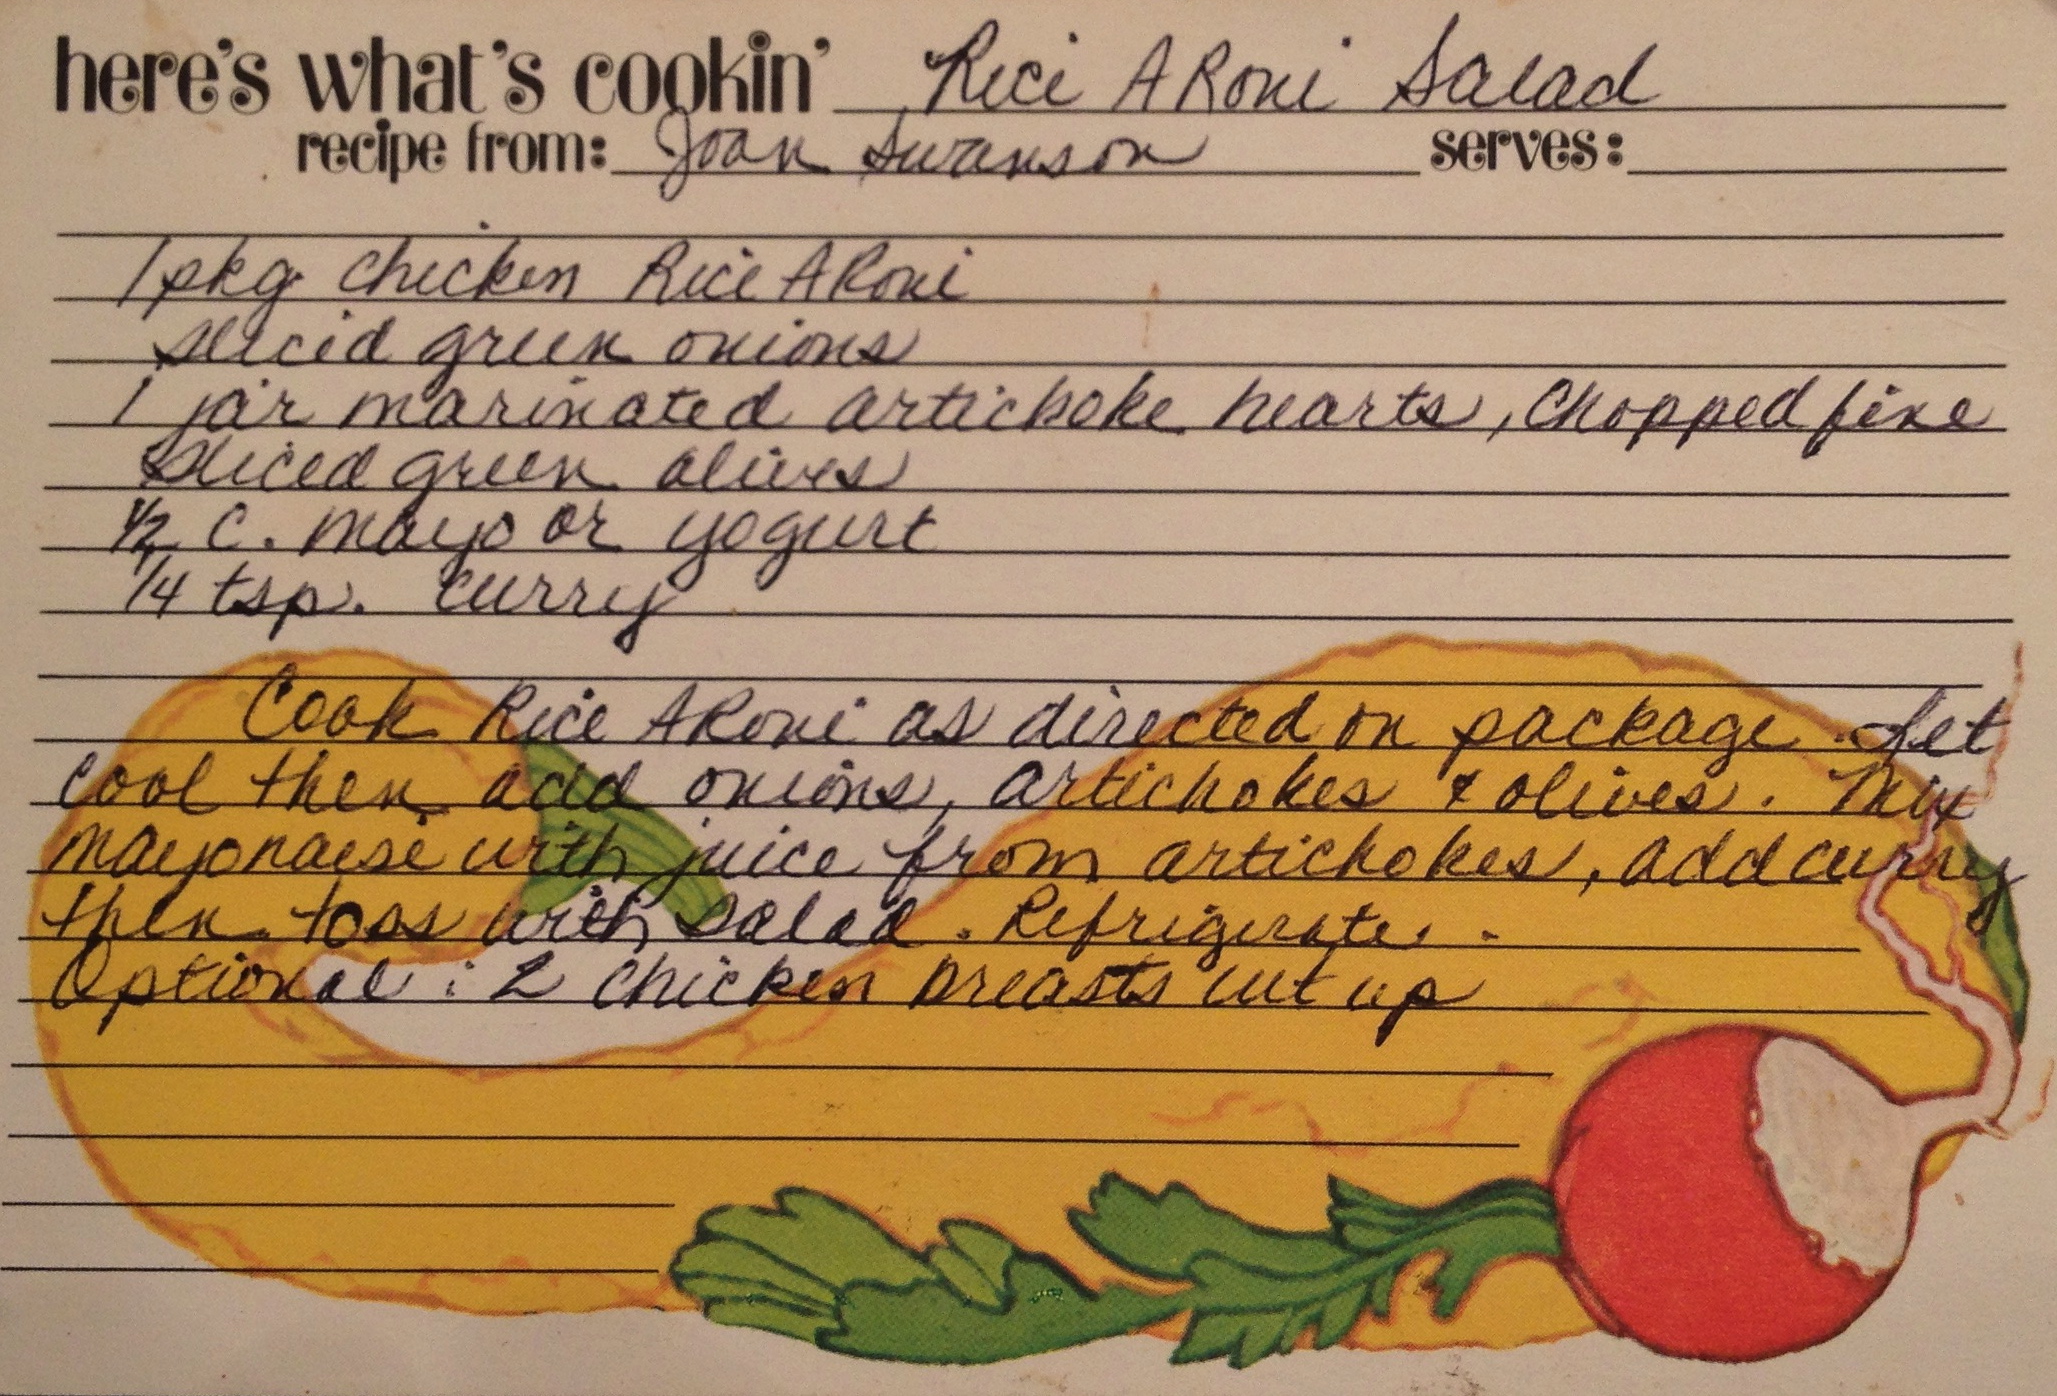 here's what's cookin' Rice A Roni Salad
recipe from: Joan Swanson serves:
1 pkg chicken Rice A Roni
sliced green onions
1 jar marinated artichoke hearts, chopped fine
sliced green olives
1/2 c. mayo or yogurt
1/4 tsp. curry
Cook Rice A Roni as directed on package. Let
cool then add onions, artichokes & olives. Mix
mayonaise with juice from artichokes, add curry
then toss with salad. Refrigerate.
Optional: 2 chicken breasts cut up